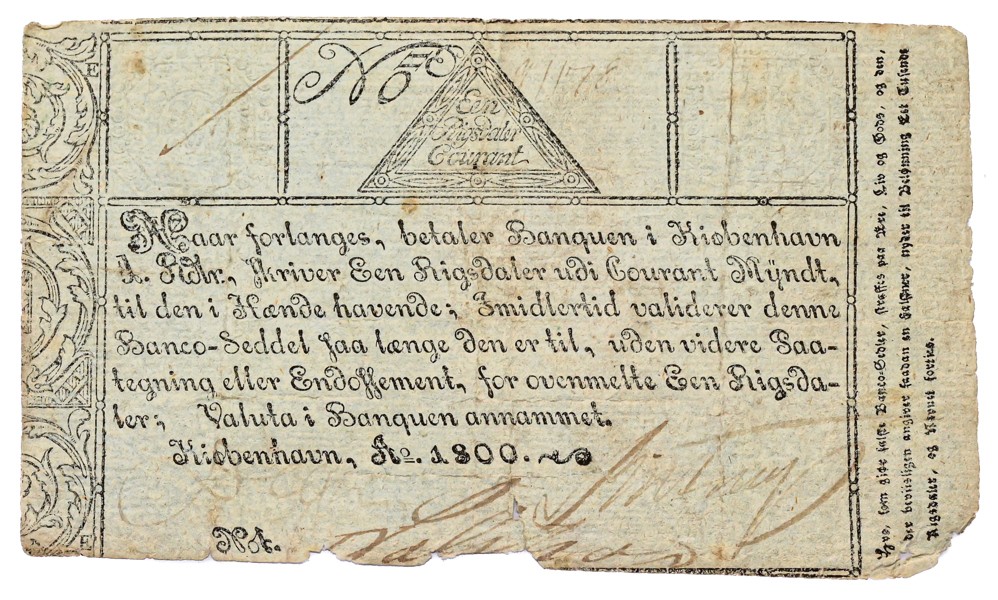 No
Een
Rigsdaler
Courant
Naar forlanges, betaler Banquen i Kiøbenhavn
1. Rdlr., skriver Een Rigsdaler udi Courant Mÿndt,
til den i Hænde havende; Imidlertid validerer denne
Banco-Seddel saa længe den er til, uden videre Paa-
tegning eller Endossement, for ovenmelte Een Rigsda-
ler; Valuta i Banquen annammet.
Kiøbenhavn, Ao. 1800.
Not.
E
E
som giøre falske Banco-Sedler, straffes paa Ære, Liv og Gods, og den,
der beviisligen angiver saadan en Falskner, nyder til Belønning Eet Tusende
Rigsdaler, og Navnet forties.